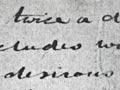 twice a d
cludes wi
desirous